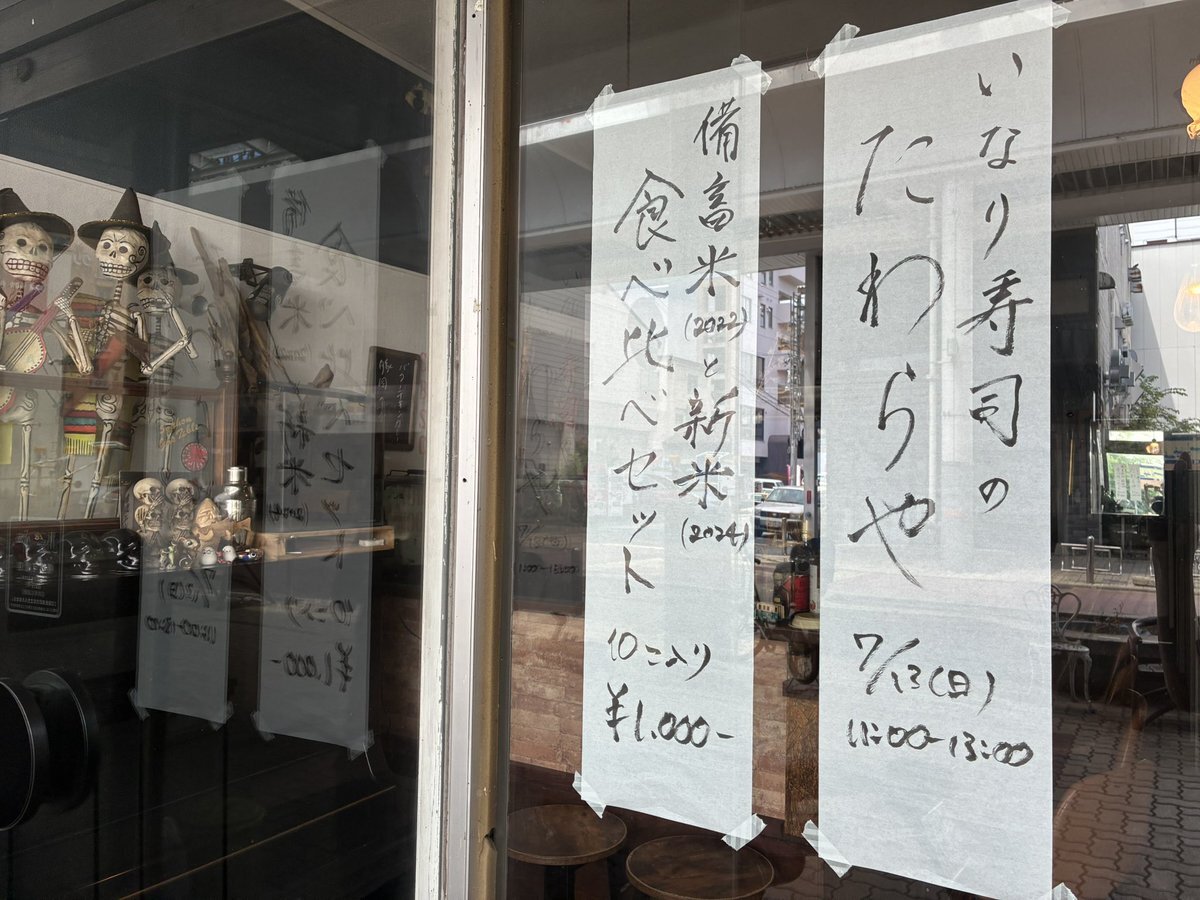 いなり寿司の
たわらや
7/13(日)
11:00-13:00
備蓄米(2022)と新米(2024)
食べ比べセット
10こ入り
¥1,000-